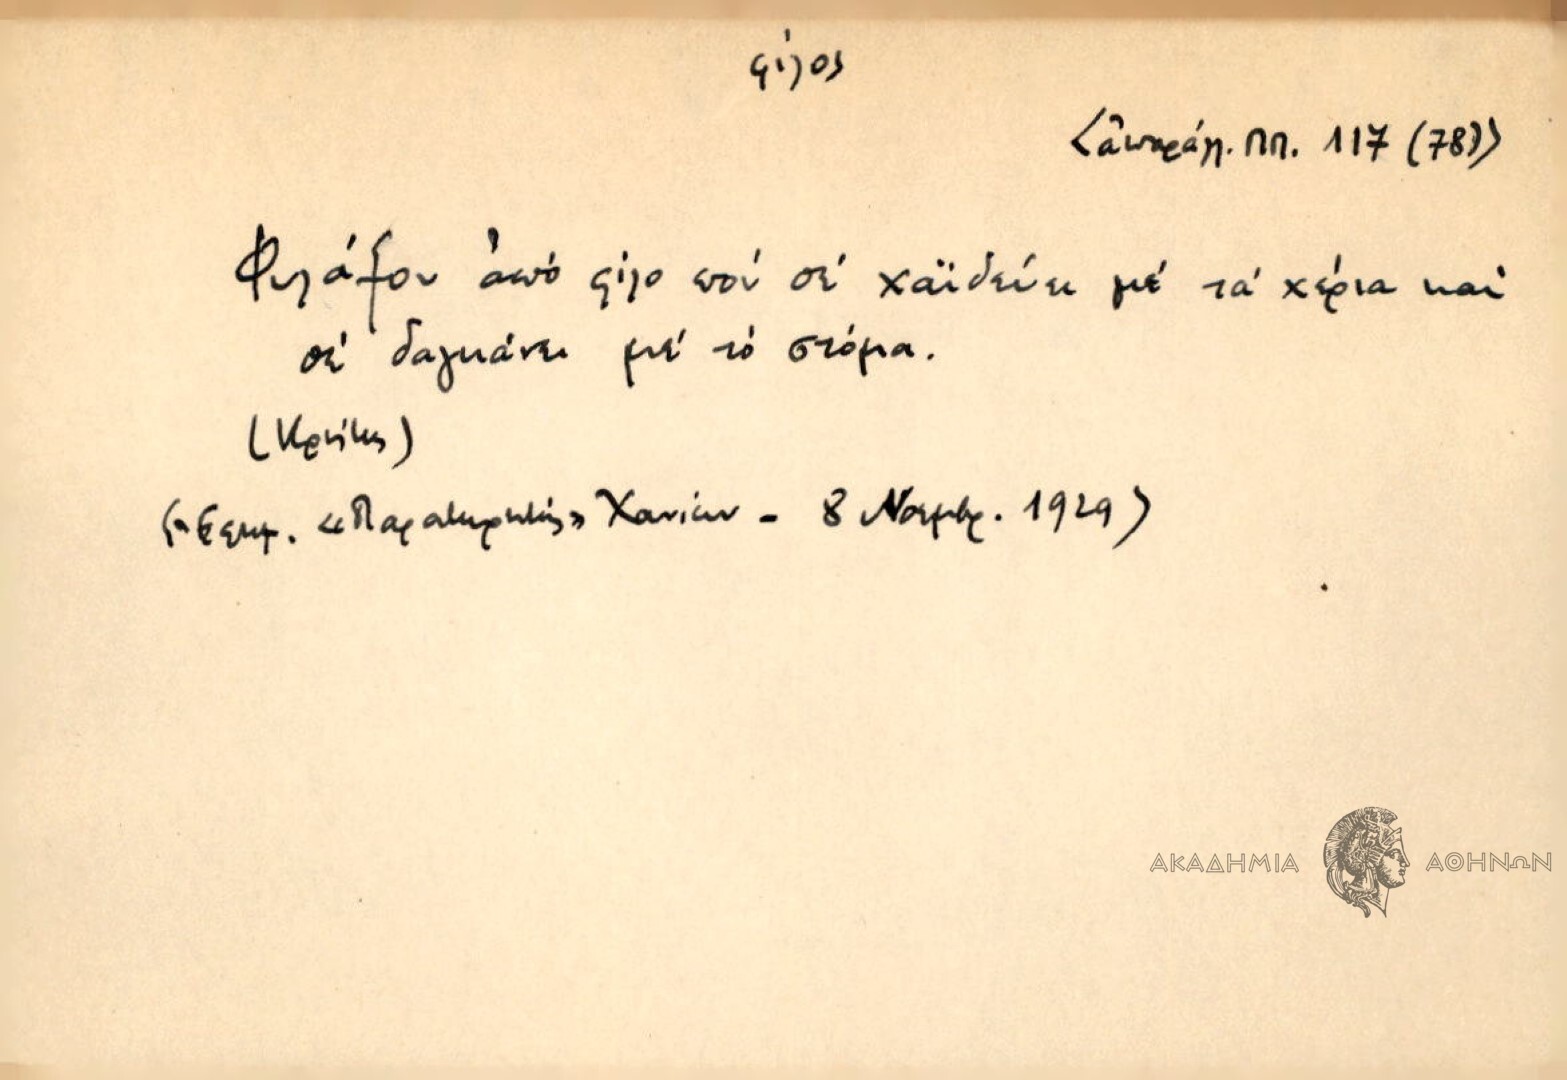 φίλος
<ἀπαράλλ. ΠΠ. 117 (78)>
Φυλάξου ἀπό φίλο πού σέ χαϊδεύει μέ τά χέρια καί
σέ δαγκάνει μέ τό στόμα.
(Κρήτης)
«Παρατηρητής» Χανίων - 8 Νοεμβρ. 1929>
ΑΚΑΔΗΜΙΑ ΑΘΗΝΩΝ